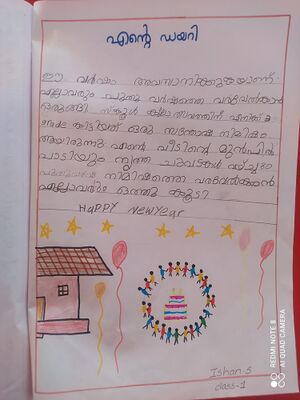 എന്റെ ഡയറി
ഈ വർഷം അവസാനിക്കുകയാണ്.
എല്ലാവരും പുതു വർഷത്തെ വരവേൽക്കാൻ
ഒരുങ്ങി. സ്കൂൾ കലോത്സവത്തിന് എനിക്ക് a
grade കിട്ടിയത് ഒരു സന്തോഷ നിമിഷം
ആയിരുന്നു. എന്റെ വീടിന്റെ മുൻപിൽ
പാടിയും നൃത്ത ചുവടുകൾ വച്ചും
പുതുവർഷ നിമിഷത്തെ വരവേൽക്കാൻ
എല്ലാവരും ഒത്തു കൂടി.
HaPPY NewYear
Ishan.S
class-1
REDMI NOTE 8
AI QUAD CAMERA